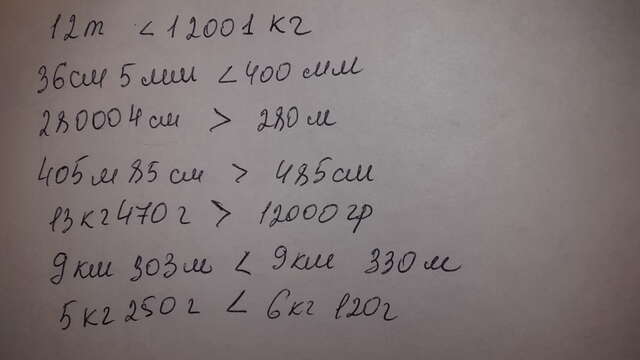 12т < 12001 кг
36см 5 мм < 400 мм
280004см > 280 м
405 м 85 см > 485см
13 кг 470 г > 12000гр
9 км 303 м < 9км 330 м
5 кг 250 г < 6 кг 120г